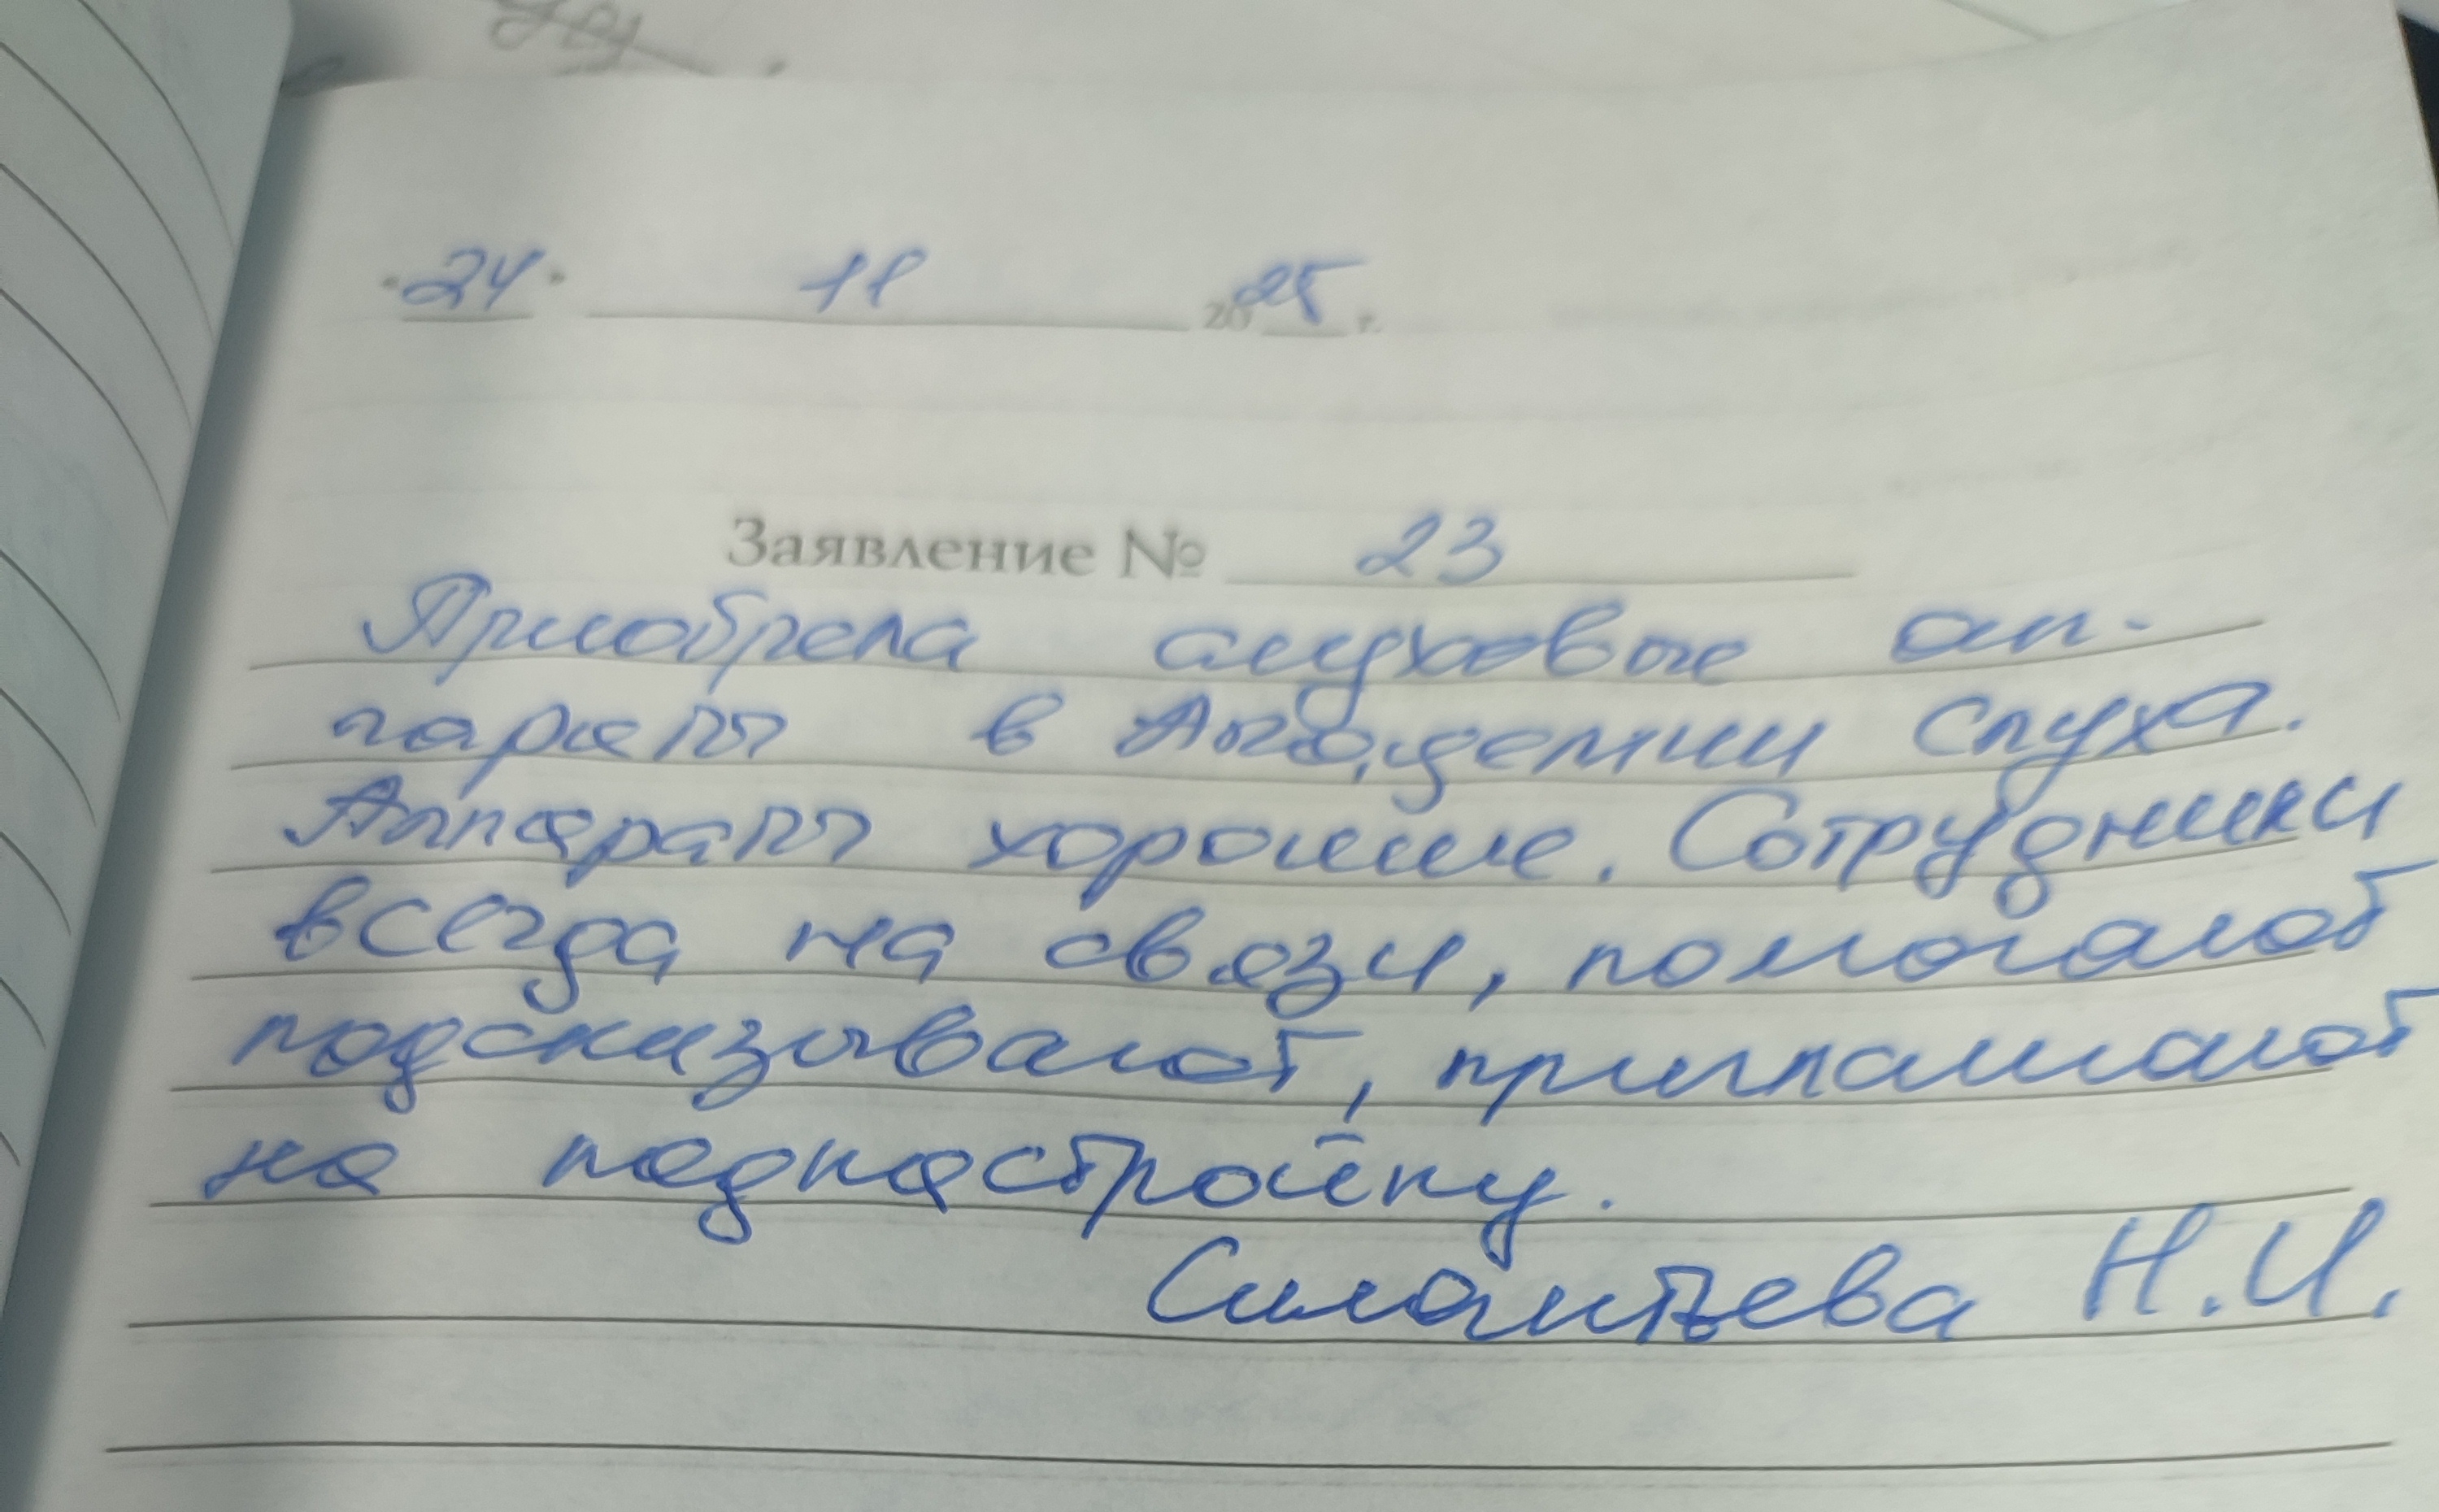 "24" 11 2025 г.
Заявление № 23
Приобрела слуховые ап-
параты в Академии слуха.
Аппараты хорошие. Сотрудники
всегда на связи, помогают
подсказывают, приглашают
на поднастройку.
Силантьева Н.И.